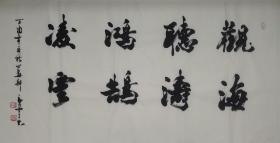 觀海
聽濤
鴻鵠
凌雲
丁酉年